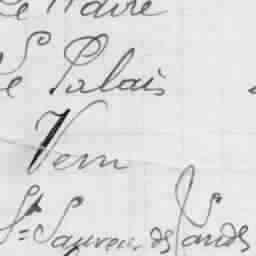 Le Havre
Le Palais
Vern
St= Sauveur des Landes